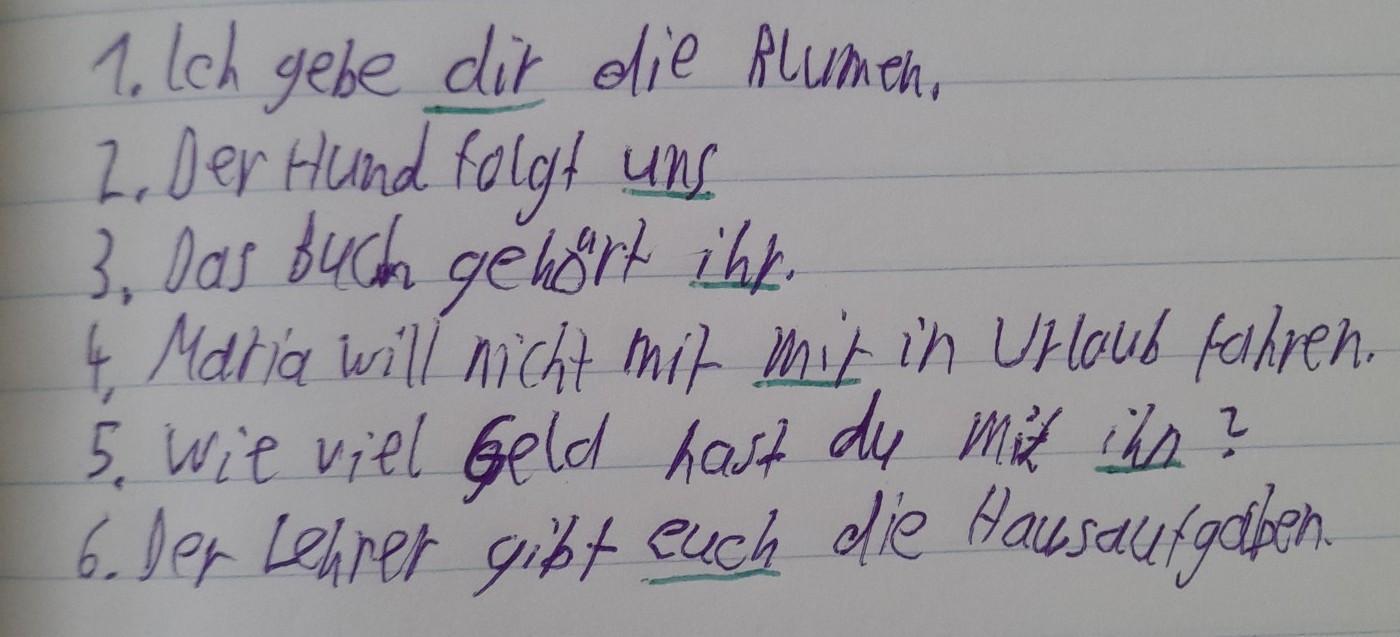 1. Ich gebe dir die Blumen.
2. Der Hund folgt uns
3. Das Buch gehört ihr.
4. Maria will nicht mit mir in Urlaub fahren.
5. Wie viel Geld hast du mit ihn?
6. Der Lehrer gibt euch die Hausaufgaben.